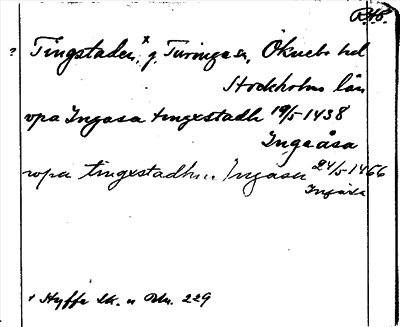 ? Tingstaden, x g. Turinge sn, Öknebo hd
Stockholms län
vpa Ingasa tingxstadh 19/5 1438
Ingeåsa
vpa tingxstadhn.. Ingasa 24/5 1466
Ingåsa
x Hyffe sk. n Nr. 229